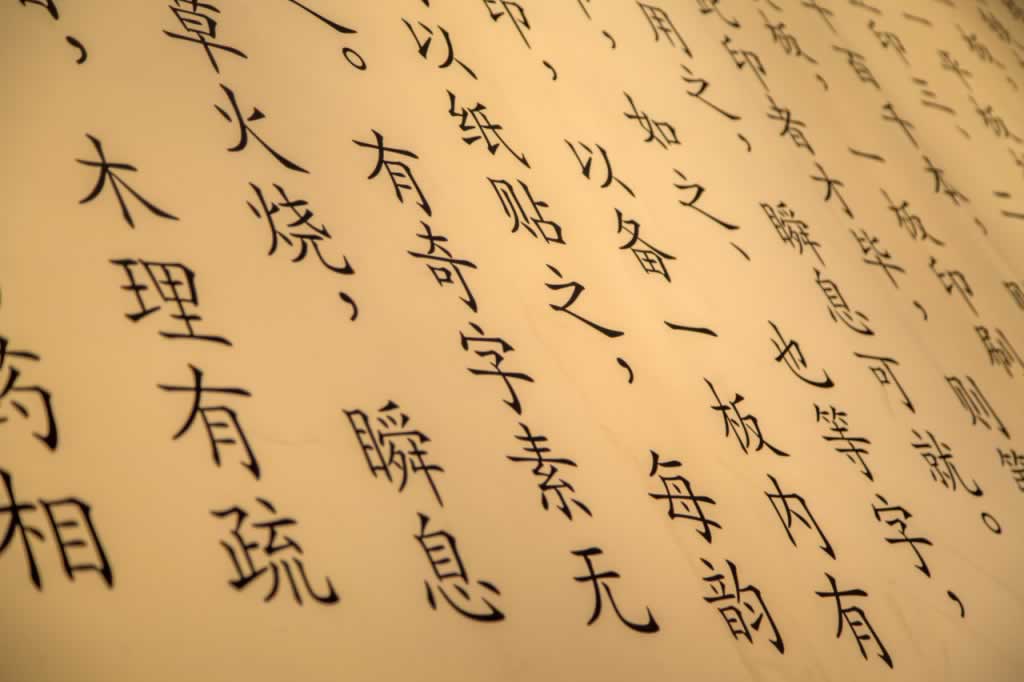 平板
印三、二
十百千本，
板，一板印刷
此印者才毕，则
用之，瞬息可就。
，如之、也等字，
印，以备一板内有
以纸贴之，每韵
。有奇字素无
草火烧，瞬息
，木理有疏
药相